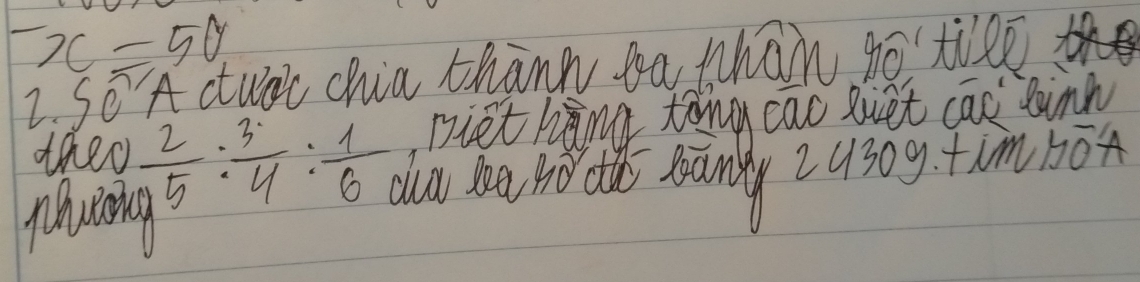 x = 50
2. Số A được chia thành ba phần số tỉ lệ
theo 2/5 : 3/4 : 1/6. Biết rằng tổng các biết các bình
phương của ba số đó bằng 24309. tìm số A